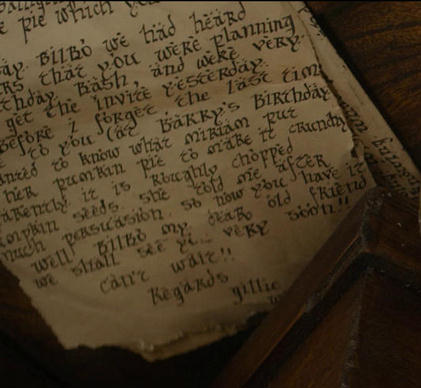 pie which ye
ay. Bilbo we had heard
rs that you were planning
thday Bash, and were very
get the invite yesterday.
before I forget the last time
to you (at Barry's Birthday
anted to know what Miriam put
her pumpkin pie to make it crunchy
arently it is roughly chopped
mpkin seeds. She told me after
much persuasion. so now you have it
well Bilbo my dear old friend
we shall see yo very soon!!
can't wait!!
Regards gillie